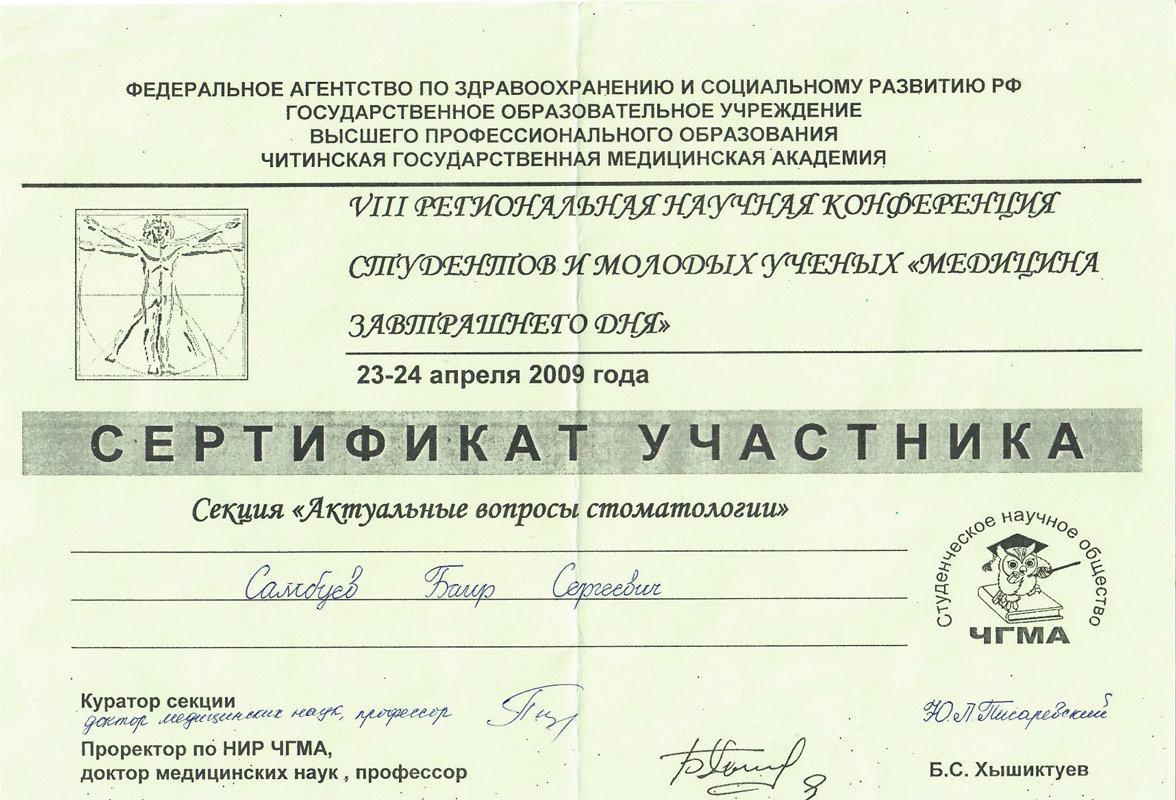 ФЕДЕРАЛЬНОЕ АГЕНТСТВО ПО ЗДРАВООХРАНЕНИЮ И СОЦИАЛЬНОМУ РАЗВИТИЮ РФ
ГОСУДАРСТВЕННОЕ ОБРАЗОВАТЕЛЬНОЕ УЧРЕЖДЕНИЕ
ВЫСШЕГО ПРОФЕССИОНАЛЬНОГО ОБРАЗОВАНИЯ
ЧИТИНСКАЯ ГОСУДАРСТВЕННАЯ МЕДИЦИНСКАЯ АКАДЕМИЯ
VIII РЕГИОНАЛЬНАЯ НАУЧНАЯ КОНФЕРЕНЦИЯ
СТУДЕНТОВ И МОЛОДЫХ УЧЕНЫХ «МЕДИЦИНА
ЗАВТРАШНЕГО ДНЯ»
23-24 апреля 2009 года
СЕРТИФИКАТ УЧАСТНИКА
Секция «Актуальные вопросы стоматологии»
Самбуев Баир Сергеевич
Студенческое научное общество
ЧГМА
Куратор секции
доктор медицинских наук, профессор Ю.Л.Писаревский
Проректор по НИР ЧГМА,
доктор медицинских наук , профессор Б.С. Хышиктуев